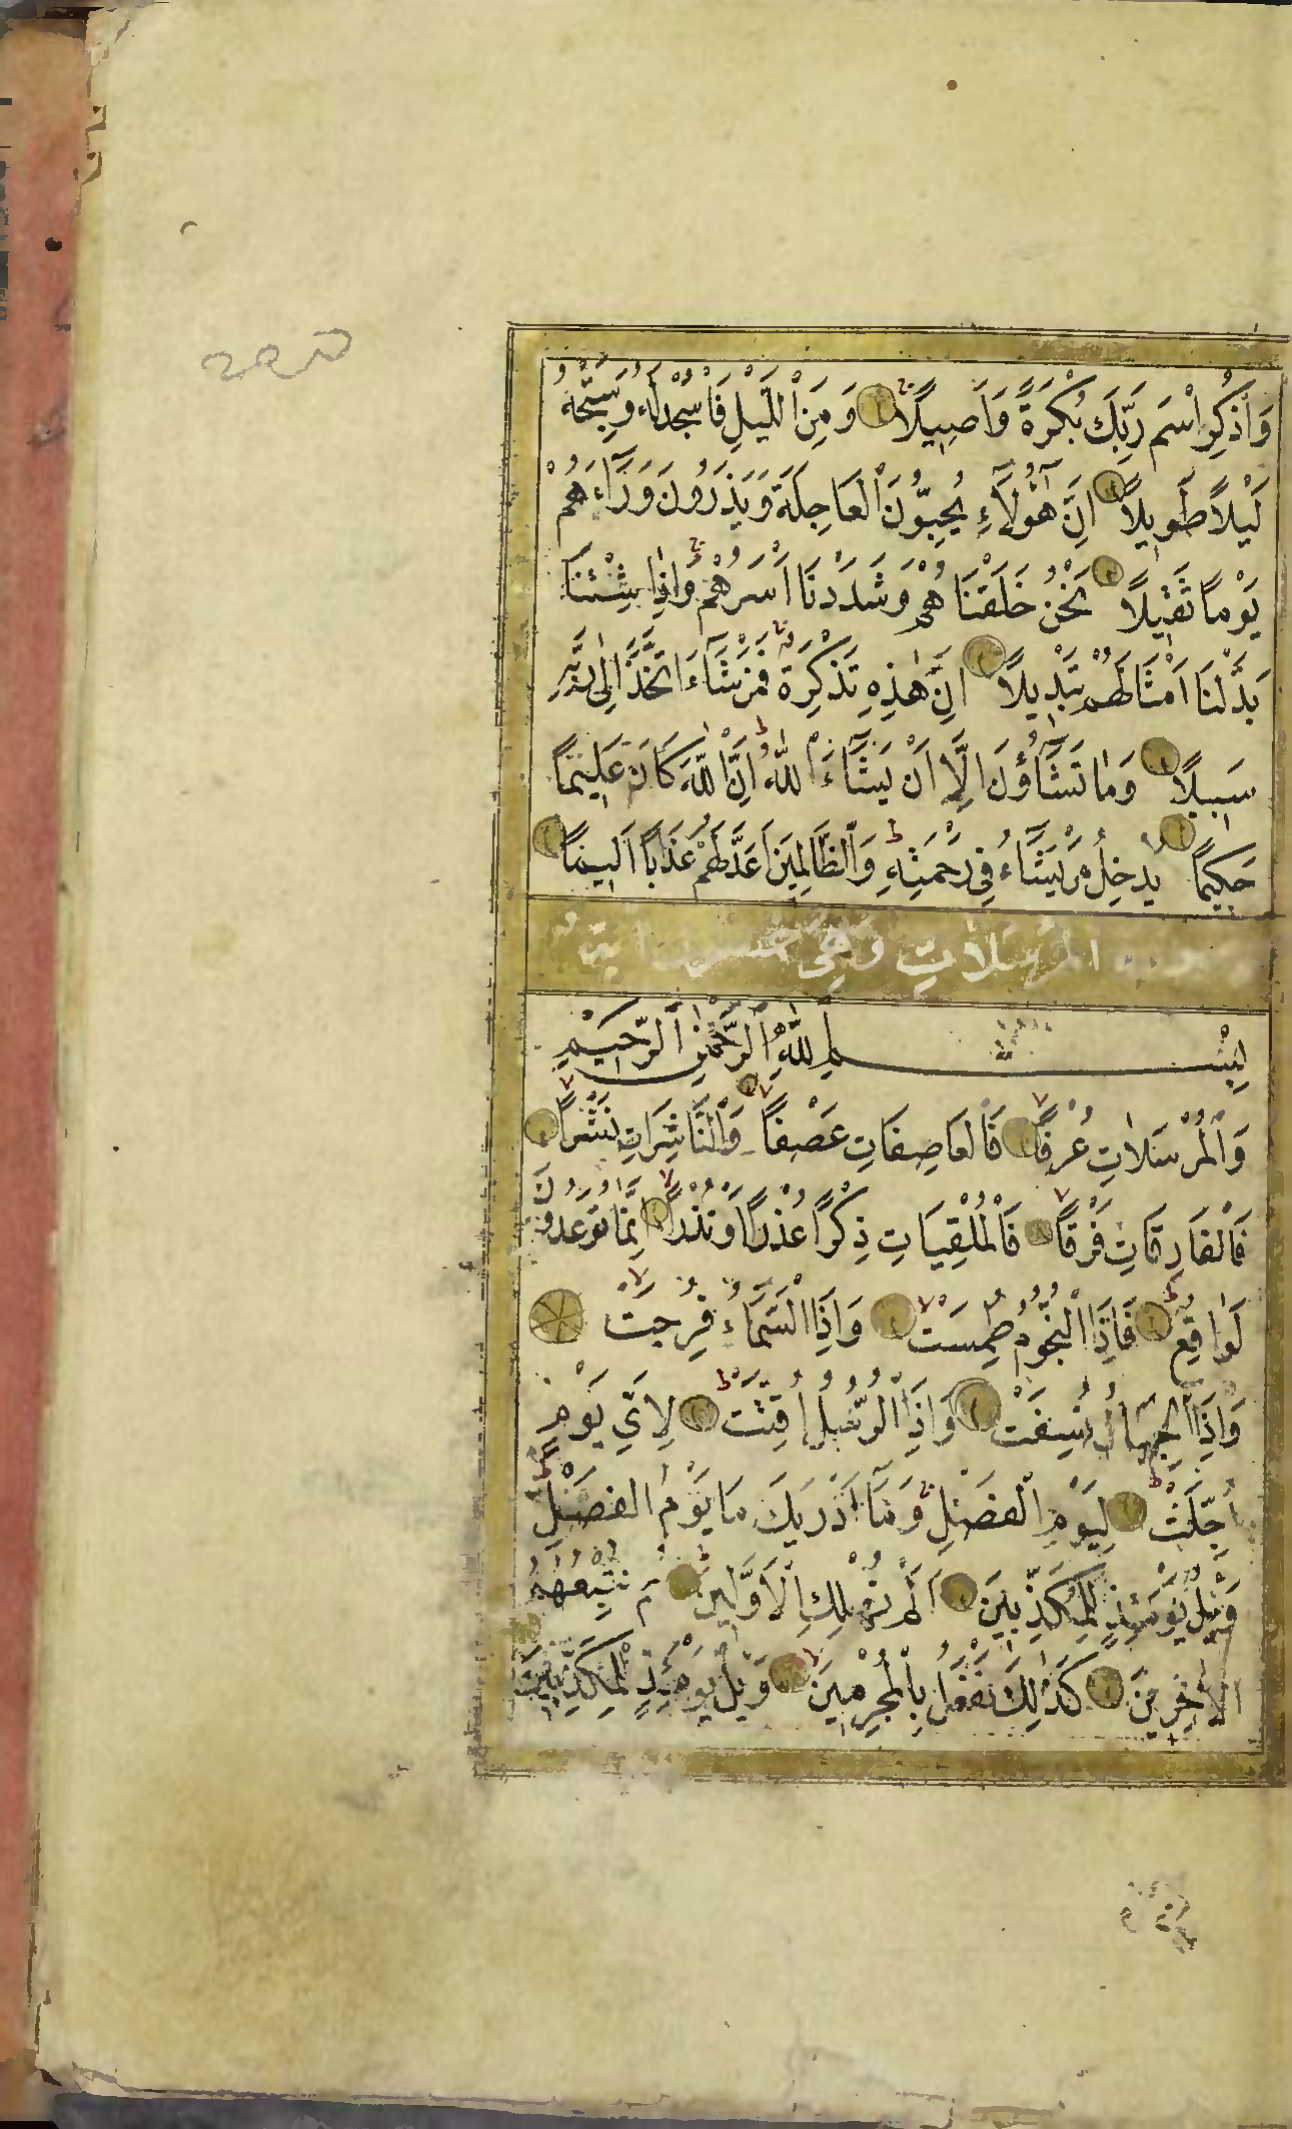 وَاذْكُرِ اسْمَ رَبِّكَ بُكْرَةً وَاَصِيلًا وَمِنَ الَّيْلِ فَاسْجُدْ لَهُ وَسَبِّحْهُ
لَيْلًا طَوِيلًا اِنَّ هٰٓؤُلَآءِ يُحِبُّونَ الْعَاجِلَةَ وَيَذَرُونَ وَرَآءَهُمْ
يَوْمًا ثَقِيلًا نَحْنُ خَلَقْنَاهُمْ وَشَدَدْنَا اَسْرَهُمْ وَاِذَا شِئْنَا
بَدَّلْنَا اَمْثَالَهُمْ تَبْدِيلًا اِنَّ هٰذِهِ تَذْكِرَةٌ فَمَنْ شَآءَ اتَّخَذَ اِلٰى رَبِّهِ
سَبِيلًا وَمَا تَشَآؤُنَ اِلَّا اَنْ يَشَآءَ اللّٰهُ اِنَّ اللّٰهَ كَانَ عَلِيمًا
حَكِيمًا يُدْخِلُ مَنْ يَشَآءُ فِى رَحْمَتِهِ وَالظَّالِمِينَ اَعَدَّ لَهُمْ عَذَابًا اَلِيمًا
المرسلات وهى خمسون اية
بِسْمِ اللّٰهِ الرَّحْمٰنِ الرَّحِيمِ
وَالْمُرْسَلَاتِ عُرْفًا فَالْعَاصِفَاتِ عَصْفًا وَالنَّاشِرَاتِ نَشْرًا
فَالْفَارِقَاتِ فَرْقًا فَالْمُلْقِيَاتِ ذِكْرًا عُذْرًا اَوْ نُذْرًا اِنَّمَا تُوعَدُونَ
لَوَاقِعٌ فَاِذَا النُّجُومُ طُمِسَتْ وَاِذَا السَّمَآءُ فُرِجَتْ
وَاِذَا الْجِبَالُ نُسِفَتْ وَاِذَا الرُّسُلُ اُقِّتَتْ لِاَىِّ يَوْمٍ
اُجِّلَتْ لِيَوْمِ الْفَصْلِ وَمَآ اَدْرٰيكَ مَا يَوْمُ الْفَصْلِ
وَيْلٌ يَوْمَئِذٍ لِلْمُكَذِّبِينَ اَلَمْ نُهْلِكِ الْاَوَّلِينَ ثُمَّ نُتْبِعُهُمُ
الْاٰخِرِينَ كَذٰلِكَ نَفْعَلُ بِالْمُجْرِمِينَ وَيْلٌ يَوْمَئِذٍ لِلْمُكَذِّبِينَ